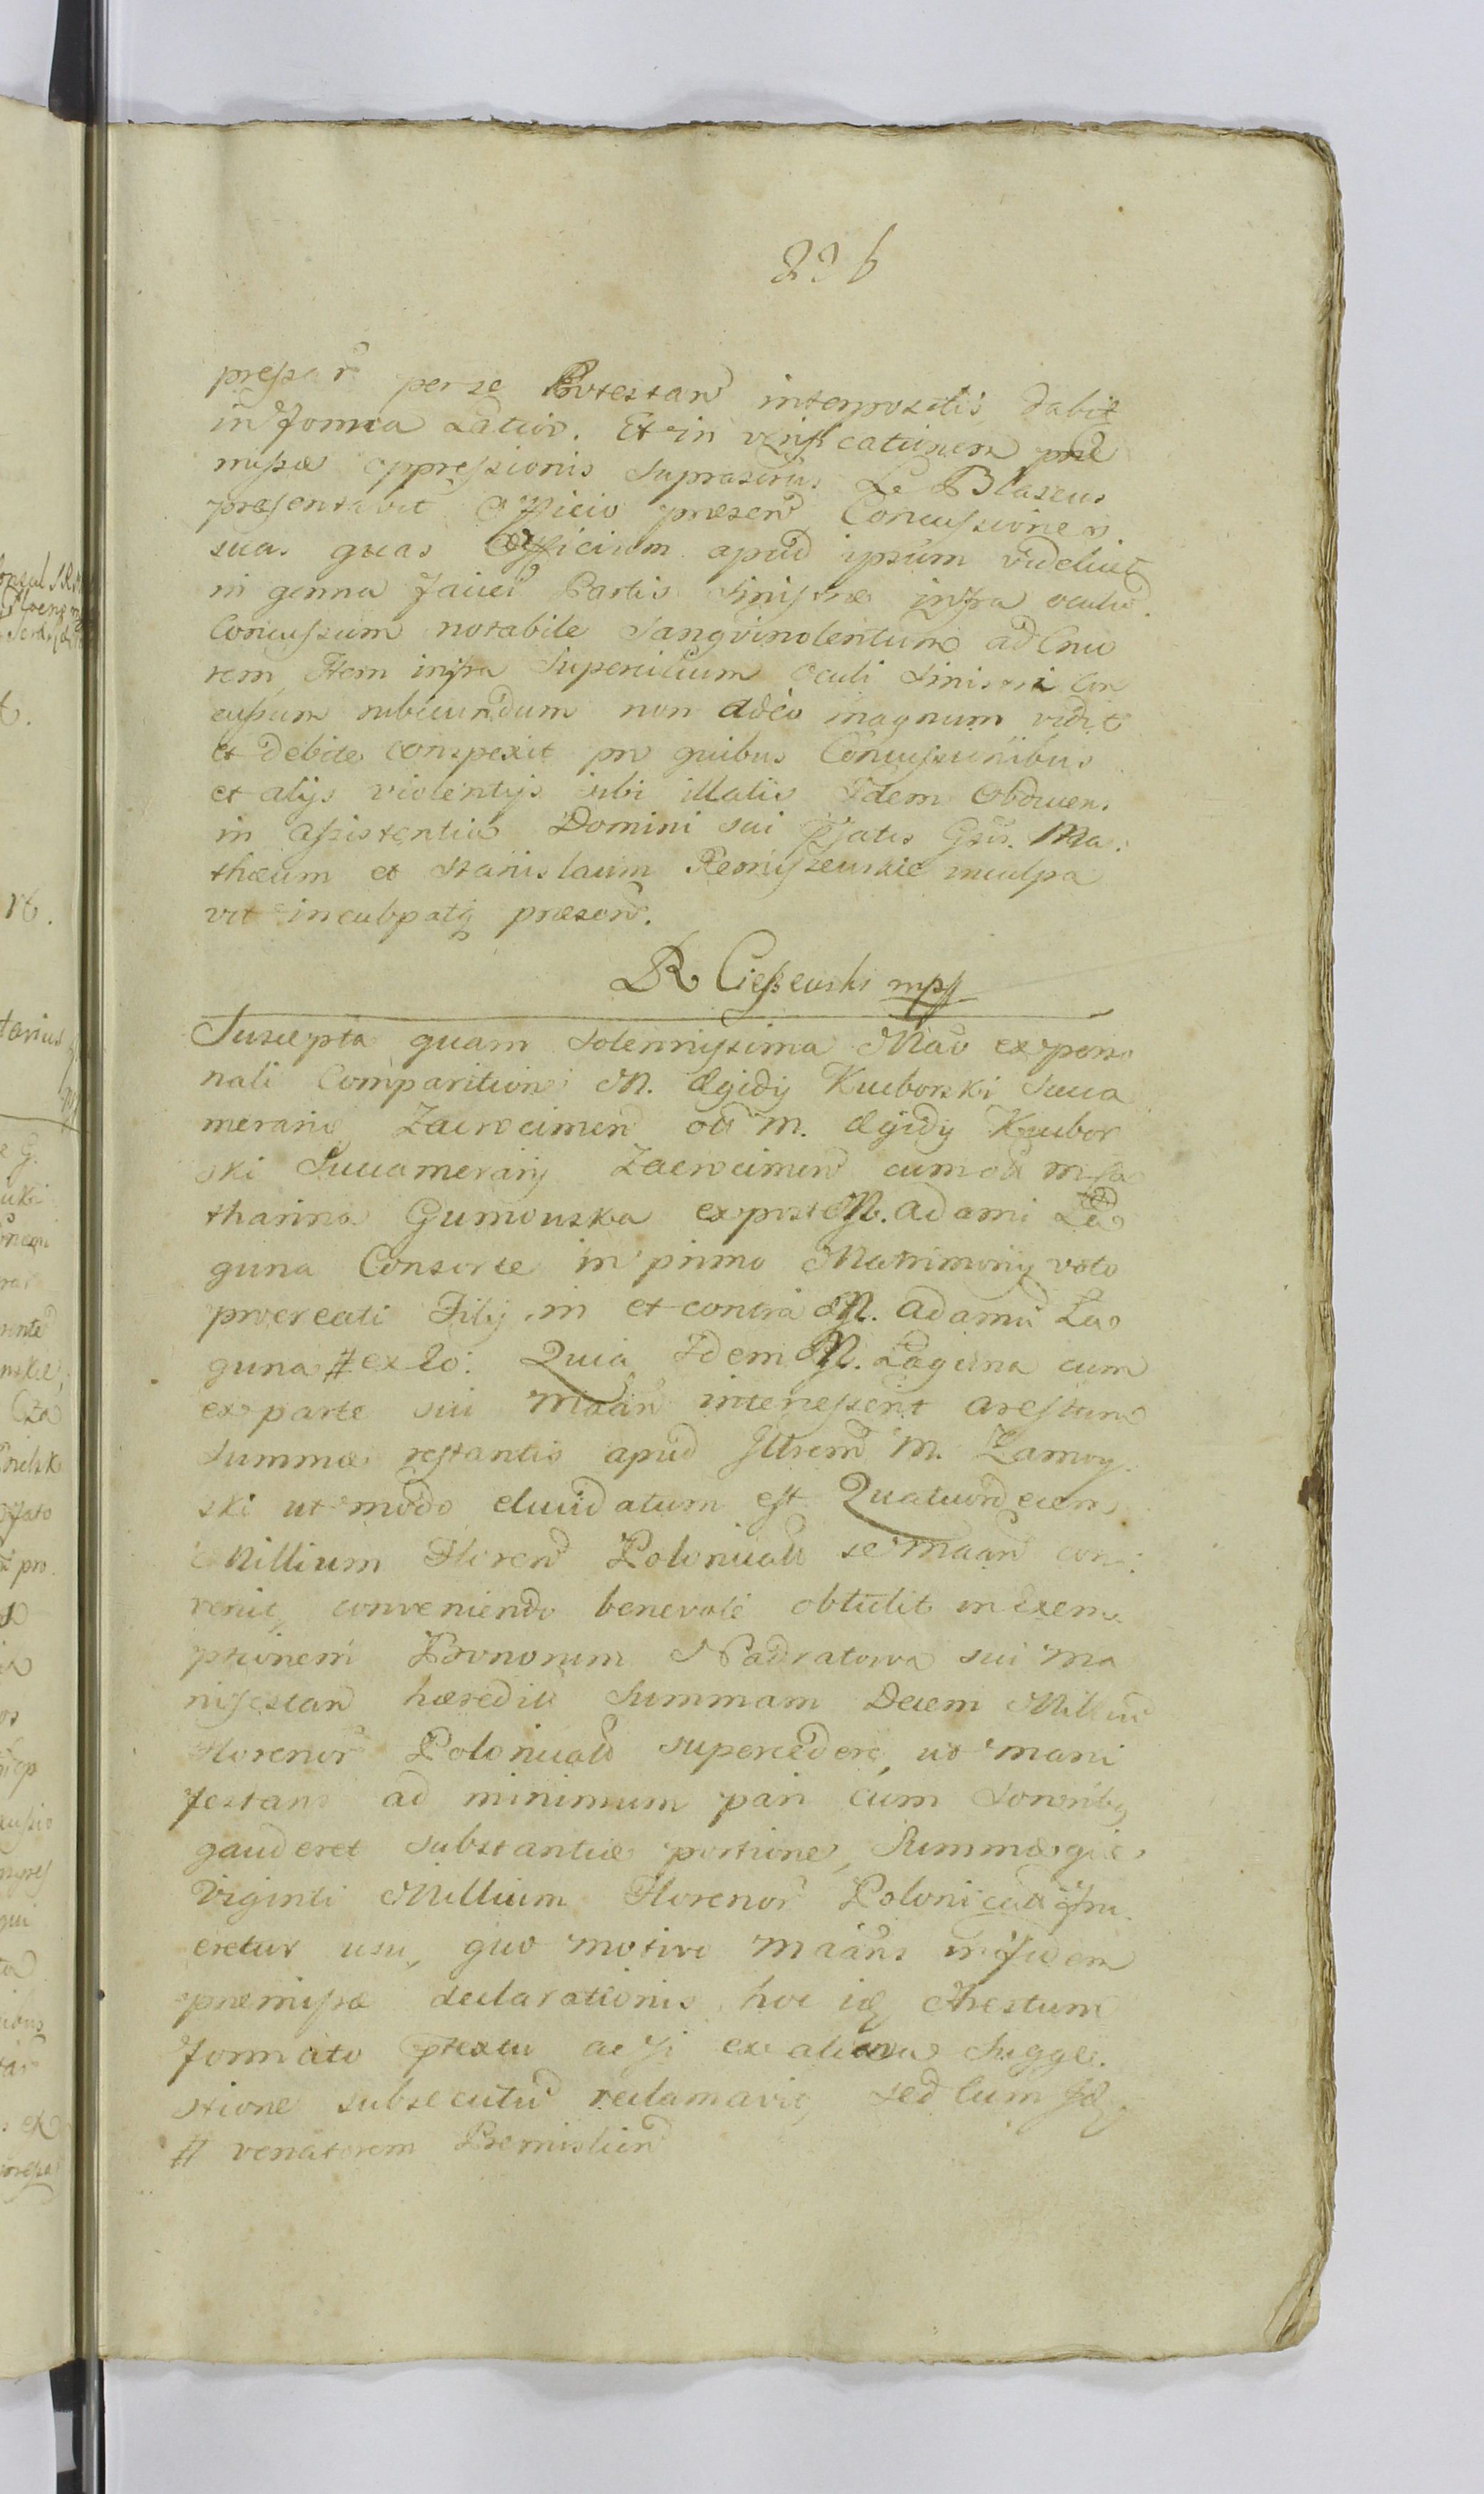 per se Protestan interpositis, dabit
in forma Latior. Et in verificationem præ
missæ oppressionis suprascrius L. Blasius
præsentavit Officio præsen Concussiones
suas quas Officium apud ipsum videlicet
in genna faciei Partis sinistræ infra oculum
Concussum notabile sangvinolentum ad Cruo
rem, Item infra Supercilium Oculi sinistri Con
cussum rubicundum non adeo magnum vidit
et debite conspexit pro quibus Concussionibus
et alijs violentijs sibi illatis Idem Obducen.
in assistentia Domini sui Gsos. Ma.
thæum et Stanislaum inculpa
vit inculpatq præsen.
R Cieszewski mpp
Suscepta quam solennissima Mao ex perso
nali Comparitione M. Ægidij Kuctborski Succa
merarij Zacrocimen olim M. Ægidij Kuctbor
ski Succamerarij Zacrocimen cum olim M. Ca
tharina Gumowska expost M. Adami La
guna Consorte in primo Matrimonij voto
procreati Filij, in et contra M. Adamu La
guna # ex eo: Quia Idem M. Laguna cum
ex parte sui Maan interessent arestum
summæ restantis apud Illrem M. Zamoy
ski ut modo elucidatum est Quatuordecem
Millium Floren Polonical se maan con
venit, conveniendo benevole obtulit in Exem
ptionem Bonorum Nadratowa sui ma
nifestan hæredit Summam Decem Milliu
Florenor Polonicali supercedere, ut mani
festans ad minimum pari cum Sororibq
gauderet substantiæ portione, Summæque
Viginti Millium Florenor Polonicali fru
eretur usu, quo motivo maans in fidem
præmissæ declarationis hoc idq Arestum
formato ptextu acsi ex aliena Sugge.
stione subsecutu reclamavit, sed cum
# venatorem Premislien